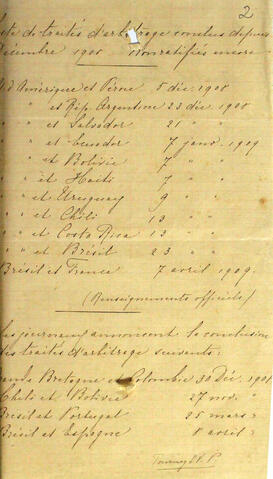 2
ste de traités d'arbitrage conclus depuis
décembre 1908 non ratifiés encore
d'Amérique et Pérou 5 déc. 1908
" " et Rép. Argentine 23 déc. 1908
" " et Salvador 21 " "
" " et Ecuador 7 janv. 1909
" " et Bolivie 7 " "
" " et Haïti 7 " "
" " et Uruguay 9 " "
" " et Chili 13 " "
" " et Costa Rica 13 " "
" " et Brésil 23 " "
Brésil et France 7 avril 1909.
(Renseignements officiels)
les journaux annoncent la conclusion
des traités d'arbitrage suivants:
ande Bretagne et Colombie 30 Déc. 1908
Chili et Bolivie 27 nov. "
Brésil et Portugal 25 mars "
Brésil et Espagne 8 avril "